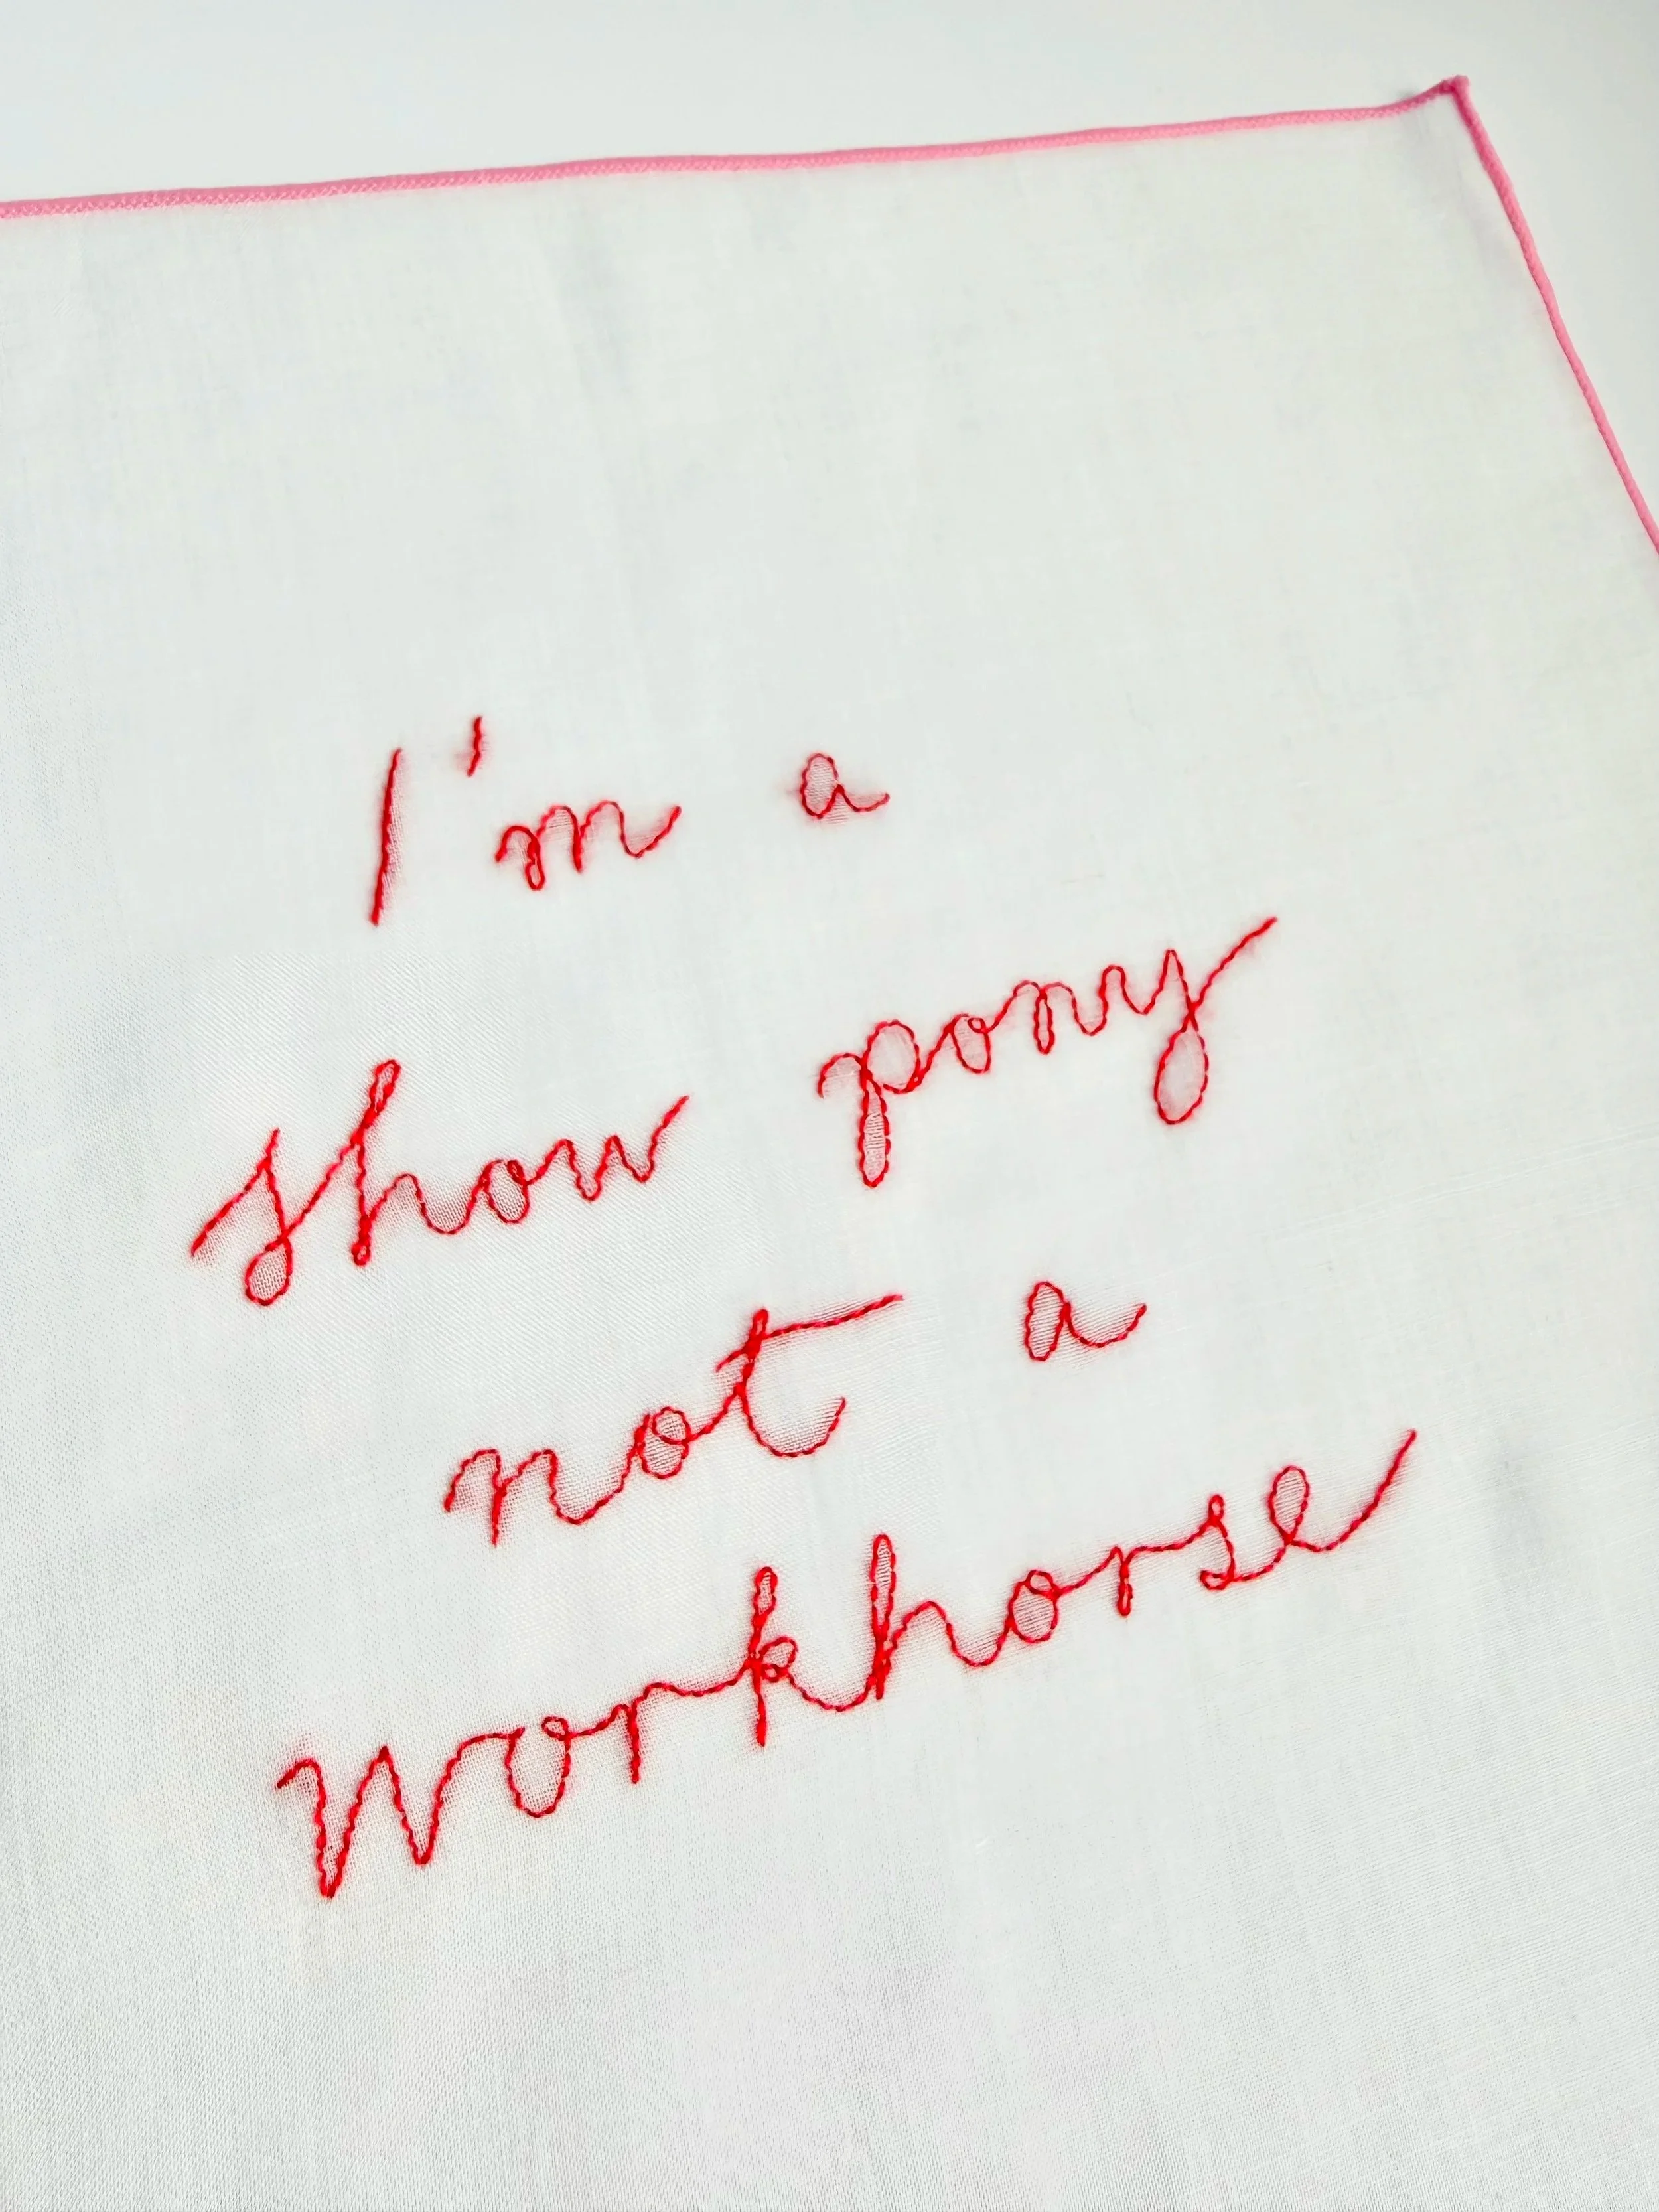 I'm a
show pony
not a
workhorse